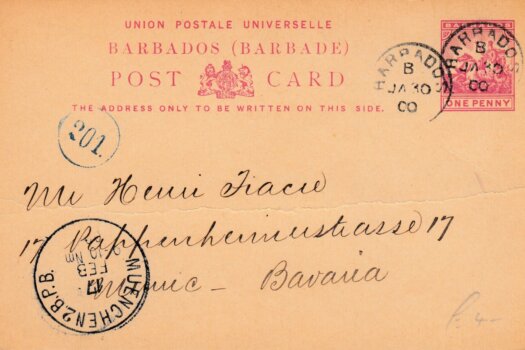 UNION POSTALE UNIVERSELLE
BARBADOS (BARBADE)
POST CARD
THE ADDRESS ONLY TO BE WRITTEN ON THIS SIDE.
ONE PENNY
BARBADOS
B
JA 30
00
BARBADOS
B
JA 30
00
201
Mr Henri
17 Pappenheimerstrasse 17
Munic - Bavaria
MUENCHEN 2.B.P.B.
17
FEB
Nm